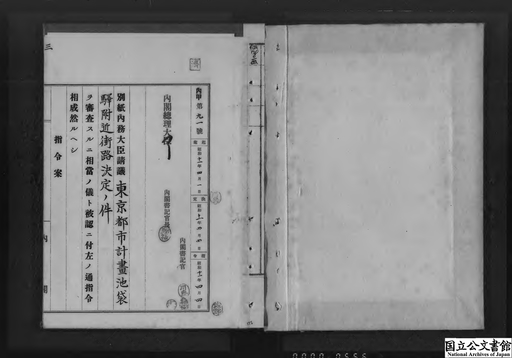 内甲第九一號
内閣總理大臣
内閣書記官長
内閣書記官
別紙内務大臣請議東京都市計畫池袋
驛附近街路決定ノ件
ヲ審査スルニ相當ノ儀ト被認ニ付左ノ通指令
相成然ルヘシ
指令案
内閣
三
国立公文書館
National Archives of Japan